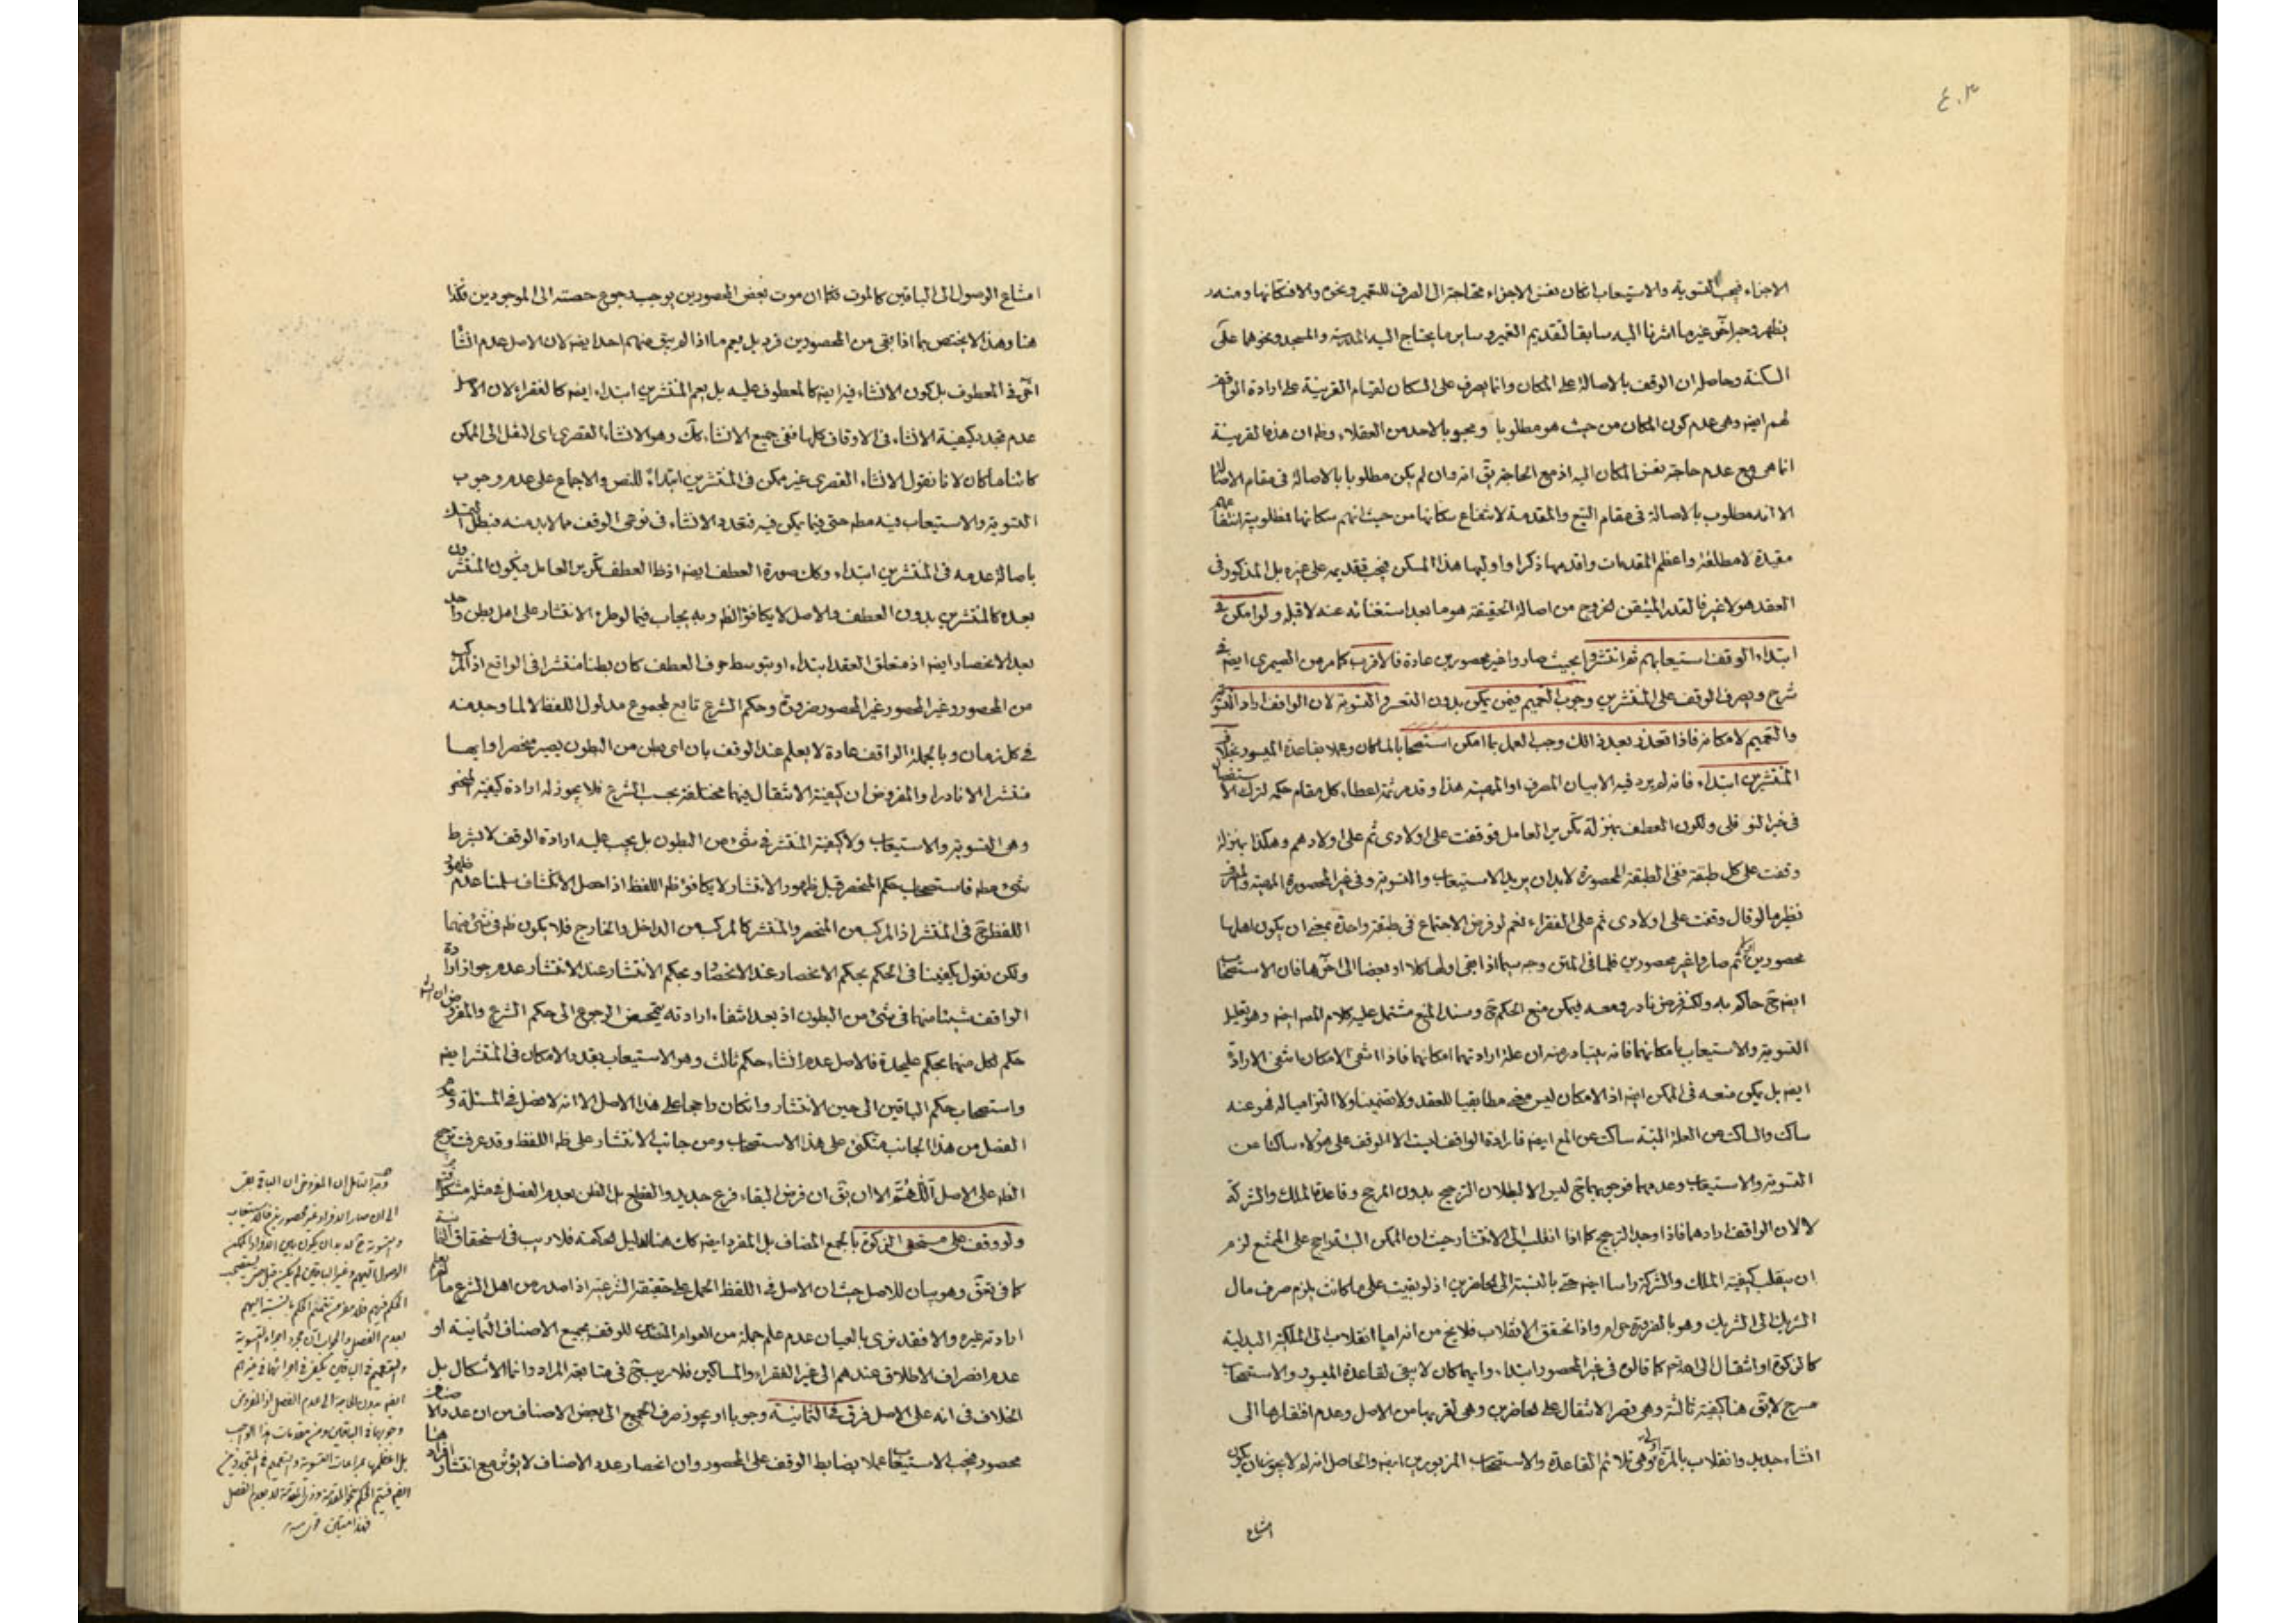 ٤٠٣
الاجزاء فيجب التسوية والاستيعاب ان كان نفس الاجزاء محتاجة الى الصرف للتعمير ونحوه والافتكانها ومنه
يظهر وجه اخر غير ما اشرنا اليه سابقا لتقديم التعمير وساير ما يحتاج اليه المدرسة والمسجد ونحوهما على
السكنة وحاصله ان الوقف بالاصالة على المكان وانما يصرف على السكان لقيام القرينة على ارادة الواقف
لهم ايضا وهى عدم كون المكان من حيث هو مطلوبا ومحبوبا لاحد من العقلاء وظ ان هذه القرينة
انما هى مع عدم حاجة نفس المكان اليه اذ مع الحاجة يق انه وان لم يكن مطلوبا بالاصالة فى مقام
الا انه مطلوب بالاصالة فى مقام التبع والمقدمة لانتفاع سكانها من حيث انهم سكانها فمطلوبية
مقيدة لا مطلقة واعظم المقدمات واقدمها ذكرا واوليها هذا المسكن فيجب تقديمه على غيره بل المذكور فى
العقد هو لا غير فالقدر المتيقن لخروج من اصالة الحقيقة هو ما بعد استغنائه عنه لا قبله ولو امكن فى
ابتداء الوقف استيعابهم ثم انتشروا بحيث صاروا غير محصورين عادة فالاقرب كما مر من الصيمرى ايضا فى
شرح ويصرف الوقف على المنتشرين وجوب التعميم فيمن يمكن بدون التعسر والتسوية لان الواقف اراد التسوية
والتعميم لامكانه فاذا تعذر بعد ذلك وجب العمل بما امكن استصحابا بالمكان وعملا بقاعدة الميسور بخلاف
المنتشرين ابتداء فانه لم يرد فيه الا بيان المصرف او المهية هذا وقد مر ثمة اعطاء كل مقام حكمه لترك الاستفصال
فى خبر النوفلى ولكون العطف بمنزلة تكرير العامل فوقفت على اولادى ثم على اولادهم وهكذا بمنزلة
وقفت على كل طبقة ففى الطبقة المحصورة لابد ان يريد الاستيعاب والتسوية وفى غير المحصورة المهية والمصرف
نظير ما لو قال وقفت على اولادى ثم على الفقراء نعم لو فرض الاجتماع فى طبقة واحدة بمعنى ان يكون اهلها
محصورين ثم صاروا غير محصورين فلما فى المتن وجه سيما اذا بقى اولها كلا او بعضا الى اخرها فان الاستصحاب
ايضا ح حاكم به ولكنه فرض نادر ومعه فيمكن منع الحكم ح وسند المنع مشتمل عليه كلام المص ايضا وهو تعليل
التسوية والاستيعاب بامكانهما فانه يتبادر منه ان علة ارادتهما امكانهما فاذا انتفى الامكان انتفى الارادة
ايضا بل يمكن منعه فى الممكن ايضا اذ الامكان ليس معنى مطابقيا للعقد ولا تضمينا ولا التزاميا له فهو عنه
ساكت والساكت عن العلة البتة ساكت عن المع ايضا فارادة الواقف ليست الا الوقف على هؤلاء ساكتا عن
التسوية والاستيعاب وعدمهما فوجوبهما ح ليس الا لبطلان الترجيح بدون المرجح وقاعدة الملك والشركة
لا لان الواقف ارادهما فاذا وجد الترجيح كما اذا انقلب الى الانتشار حيث ان الممكن راجح على الممتنع لزم
ان ينقلب كيفية الملك والشركة راسا ايضا حتى بالنسبة الى الحاضرين اذ لو بقيت على ما كانت يلزم صرف مال
الشريك الى الشريك وهو بالضرورة حرام واذا تحقق الانقلاب فلا يخ من انه اما انقلاب الى الملكية البدلية
كالزكوة او انتقال الى كما قالوه فى غير المحصور ابتداء وايهما كان لا يبقى لقاعدة الميسور والاستصحاب
مسرح لا يق هنا كيفية ثالثة وهى قصر الانتقال على الحاضرين وهى لقربها من الاصل وعدم افتقارها الى
انشاء جديد وانقلاب بالمرة اولى وهى تلائم القاعدة والاستصحاب المزبورين ايضا والحاصل انه لم لا يجوز ان يكون
امتناع
امتناع الوصول الى الباقين كالموت فكما ان موت بعض المحصورين يوجب رجوع حصته الى الموجودين فكذا
هنا وهذا لا يختص بما اذا بقى من المحصورين فرد بل يعم ما اذا لم يبق منهم احد ايضا لان الاصل عدم انشاء
اخر فى المعطوف بل كون الانشاء فيه ايضا كالمعطوف عليه بل يعم المنتشرين ابتداء ايضا كالفقراء لان الاصل
عدم تجدد كيفية الانشاء فى الاوقاف كلها ففى جميع الانشاء كك وهو الانشاء القصرى اى النقل الى الممكن
كائنا ما كان لانا نقول الانشاء القصرى غير ممكن فى المنتشرين ابتداء للنص والاجماع على عدم وجوب
التسوية والاستيعاب فيه مطم حتى فيما يمكن فيه فتعدد الانشاء فى نوعى الوقف مما لابد منه فبطل التمسك
باصالة عدمه فى المنتشرين ابتداء وكك صورة العطف ايضا اذ ظ العطف تكرير العامل فيكون المنتشرون
بعده كالمنتشرين بدون العطف والاصل لا يكافؤ الظ وبه يجاب فيما لو طرء الانتشار على اهل بطن واحد
بعد الانحصار ايضا اذ متعلق العقد ابتداء او بتوسط حرف العطف كان بطنا منتشرا فى الواقع اذ المركب
من المحصور وغير المحصور غير المحصور ضرورة وحكم الشرع تابع لمجموع مدلول اللفظ لا لما وجد منه
فى كل زمان وبالجملة الواقف عادة لا يعلم عند الوقف بان اى بطن من البطون يصير منحصرا وايها
منتشرا الا نادرا والمفروض ان كيفية الانتقال فيهما مختلفة بحسب الشرع فلا يجوز له ارادة كيفية المنحصر
وهى التسوية والاستيعاب ولا كيفية المنتشر فى شئ من البطون بل يجب عليه ارادة الوقف لا بشرط
شئ مطم فاستصحاب حكم المنحصر قبل ظهور الانتشار لا يكافؤ ظ اللفظ اذا حصل الانكشاف سلمنا عدم ظهور
اللفظ ح فى المنتشر اذ المركب من المنحصر والمنتشر كالمركب من الداخل والخارج فلا يكون ظ فى شئ منهما
ولكن نقول يكفينا فى الحكم بحكم الانحصار عند الانحصار وبحكم الانتشار عند الانتشار عدم جواز ارادة
الواقف شيئا منهما فى شئ من البطون اذ بعد انتفاء ارادته يتمحض الرجوع الى حكم الشرع والمفروض ان الشرع
حكم لكل منهما بحكم عليحدة فالاصل عدم انشاء حكم ثالث وهو الاستيعاب بقدر الامكان فى المنتشر ايضا
واستصحاب حكم الباقين الى حين الانتشار وان كان راجحا على هذا الاصل الا انه لا فصل فى المسئلة وعدم
الفصل من هذا الجانب متكئ على هذا الاستصحاب ومن جانب الانتشار على ظ اللفظ وقد عرفت ترجيح
الظ على الاصل اللهم الا ان يق ان فرض البقاء فرع جديد والقطع بل الظن بعدم الفصل فى مثله مشكل
ولو وقف على مستحقى الزكوة بالجمع المضاف بل المفرد ايضا كك هنا لدليل الحكمة فلا ريب فى استحقاق الثمانية
كما فى تق وهو بيان للاصل حيث ان الاصل فى اللفظ الحمل على حقيقته الشرعية اذا صدر من اهل الشرع ما لم يعلم
ارادته غيره والا فقد نرى بالعيان عدم علم جملة من العوام للوقف بجميع الاصناف الثمانية او
عدم انصراف الاطلاق عندهم الى غير الفقراء والمساكين فلا ريب ح فى متابعة المراد وانما الاشكال بل
الخلاف فى انه على الاصل فرق فى الثمانية وجوبا او يجوز صرف الجميع الى بعض الاصناف من ان عدد الاصناف
محصور فيجب الاستيعاب عملا بضابط الوقف على المحصور وان انحصار عدد الاصناف لا يؤثر مع انتشار افراد
وجه التامل ان المفروض ان الباقى بقى
الى ان صار الافراد غير محصورين
الوصول اليهم وغير الباقين لم يكن
الحكم فيهم فلا
بعدم الفصل والجواب ان مجرد اجراء التسوية
والتعميم فى الباقين يكفى فى اجرائها فى غيرهم
ايضا بدون الحاجة الى عدم الفصل اذ المفروض
وجوبها فى الباقين ومن مقدمات هذا الواجب
بل اعظمها مراعات التسوية والتعميم فى
ايضا فيتم الحكم لا بعدم الفصل